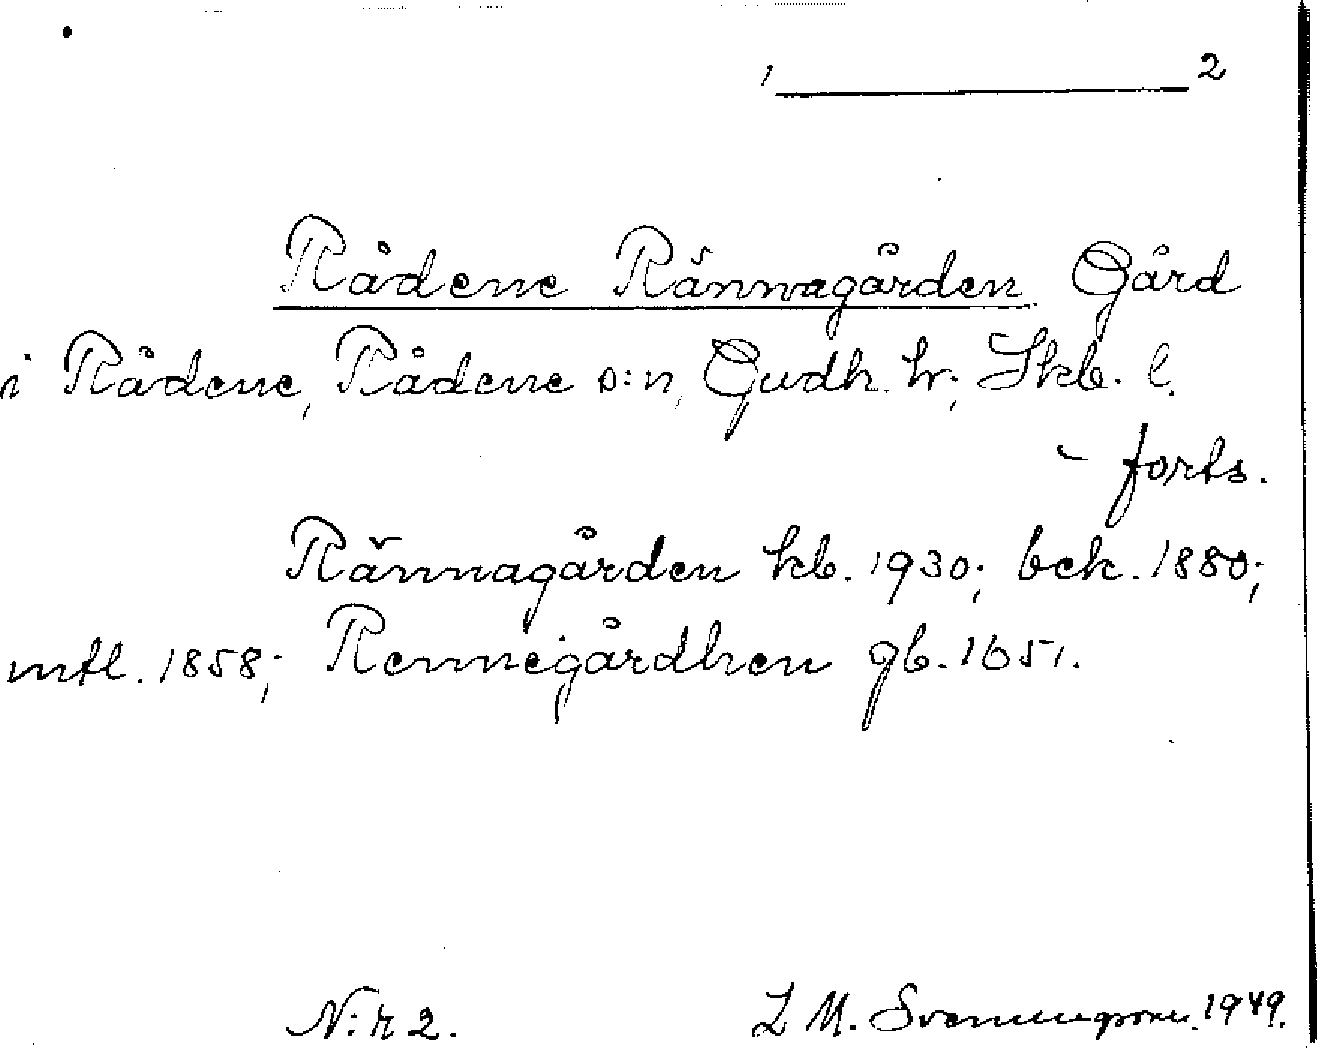 2
Rådene Rännagården Gård
i Rådene, Rådene s:n, Gudh. hr, Skb. l.
- forts.
Rännagården kb. 1930; bek. 1880;
mtl. 1858; Rennegårdhen gb. 1651.
N:r 2. L M. Svenungsson. 1949.